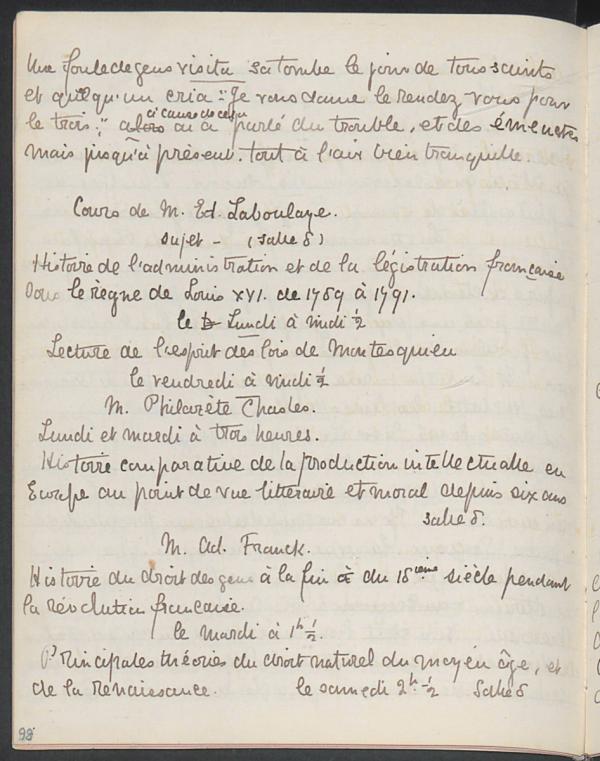 Une foule de gens visita sa tombe le jour de tous saints
et quelqu'un cria "Je vous donne le rendez-vous pour
le trois;" alors à cause de cela on a parlé du trouble, et des émeutes
mais jusqu'à présent, tout à l'air bien tranquille.
Cours de M. Ed. Laboulaye.
Sujet - (Salle 8)
Histoire de l'administration et de la législation française
sous le règne de Louis XVI. de 1789 à 1791.
le Lundi à midi ½
Lecture de l'esprit des lois de Montesquieu
le vendredi à midi ½
M. Philarète Chasles.
Lundi et mardi à trois heures.
Histoire comparative de la production intellectuelle en
Europe au point de vue littéraire et moral depuis six ans
salle 8.
M. Ad. Franck.
Histoire du droit des gens à la fin du 18ième siècle pendant
la révolution française.
le mardi à 1h ½.
Principales théories du droit naturel du moyen âge, et
de la renaissance. le samedi 2h ½ Salle 8
98